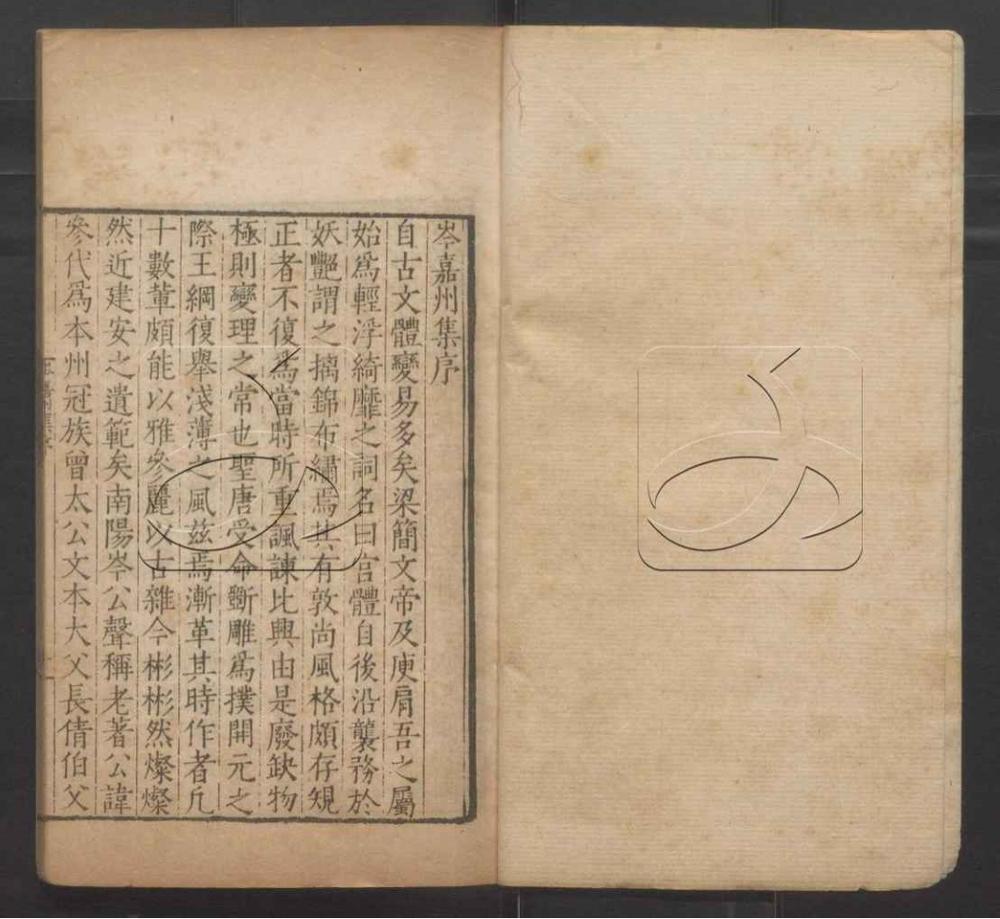 岑嘉州集序
自古文體變易多矣梁簡文帝及庾肩吾之屬
始爲輕浮綺靡之詞名曰宫體自後沿襲務於
妖艷謂之摛錦布繡焉其有敦尚風格頗存規
正者不復爲當時所重諷諫比興由是廢缺物
極則變理之常也聖唐受命斲雕爲撲開元之
際王綱復舉淺薄之風兹焉漸革其時作者凡
十數輩頗能以雅參麗以古雜今彬彬然燦燦
然近建安之遺範矣南陽岑公聲稱老著公諱
參代爲本州冠族曾太公文本大父長倩伯父